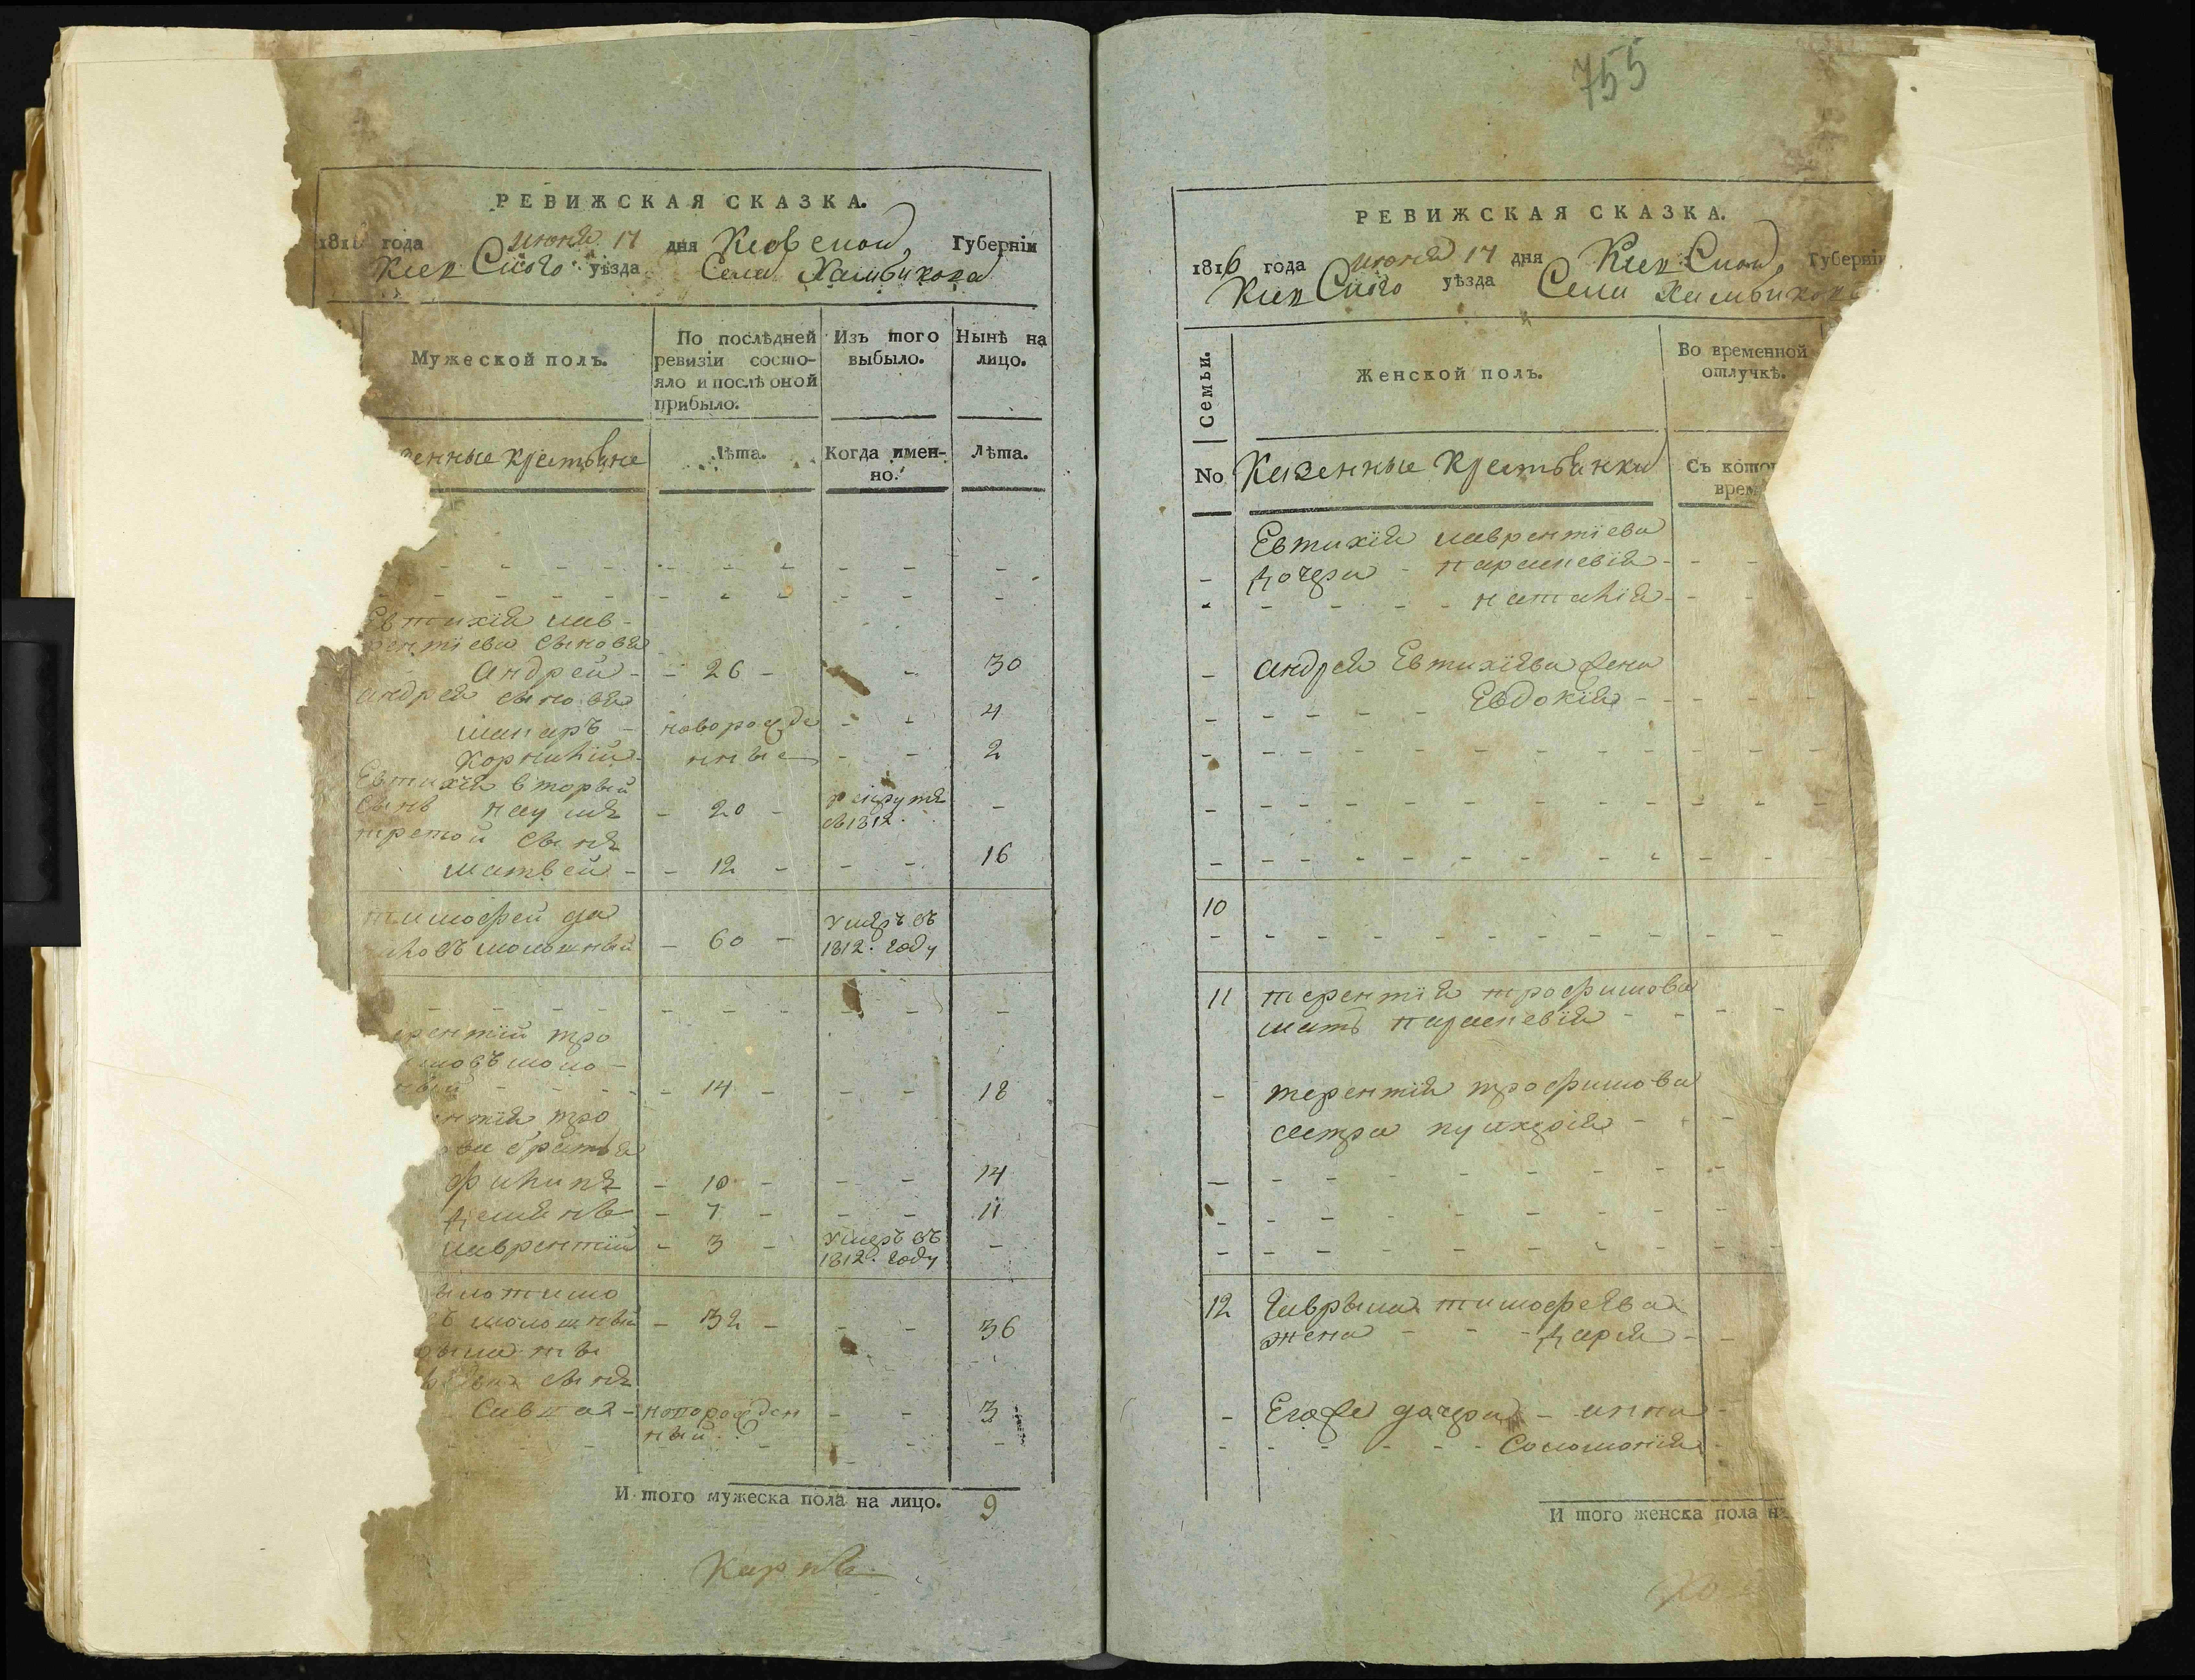 РЕВИЖСКАЯ СКАЗКА.
181 года июня 17 дня Киевской Губерніи
Киевского уѣзда Села
Мужеской полъ.
По послѣдней ревизіи состо-
яло и послѣ оной
прибыло.
Изъ того
выбыло.
Нынѣ на
лицо.
енные крестьяне
Лѣта.
Когда имен-
но.
Лѣта.
Евтихія лав-
рентіева сыновя
Андрей - 26 - 30
андрея сыновя
макаръ - новорожде 4
Корнилій - нные 2
Евтихія вторый
сынъ наумъ - 20 - рекрутъ
въ 1812.
третой сынъ
матвей - 12 - 16
тимофей да
ловъ молошный - 60 - умеръ въ
1812. году
ерентій тро
мовъ моло-
ный - 14 - 18
нтія тро
ва братья
филипъ - 10 - 14
демянъ - 7 - 11
лаврентій - 3 - умеръ въ
1812. году
ъ молошный - 32 - 36
сынъ
Савва - новорожден 3
ный.
И того мужеска пола на лицо. 9
Карпъ
755
РЕВИЖСКАЯ СКАЗКА.
1816 года июня 17 дня Киевской Губерніи
Киевского уѣзда Села
Семьи.
Женской полъ.
Во временной
отлучкѣ.
No
Казенные крестьянки
Съ котор
врем
Евтихія лаврентіева
дочери - параскевія -
наталія -
андрея Евтихіева жена
Евдокія -
10
11 терентія трофимова
мать параскевія -
терентія трофимова
сестра пулхерія -
12 Гаврыла тимофеева
жена - дария -
Егоже дочери - анна -
Соломонія -
И того женска пола на